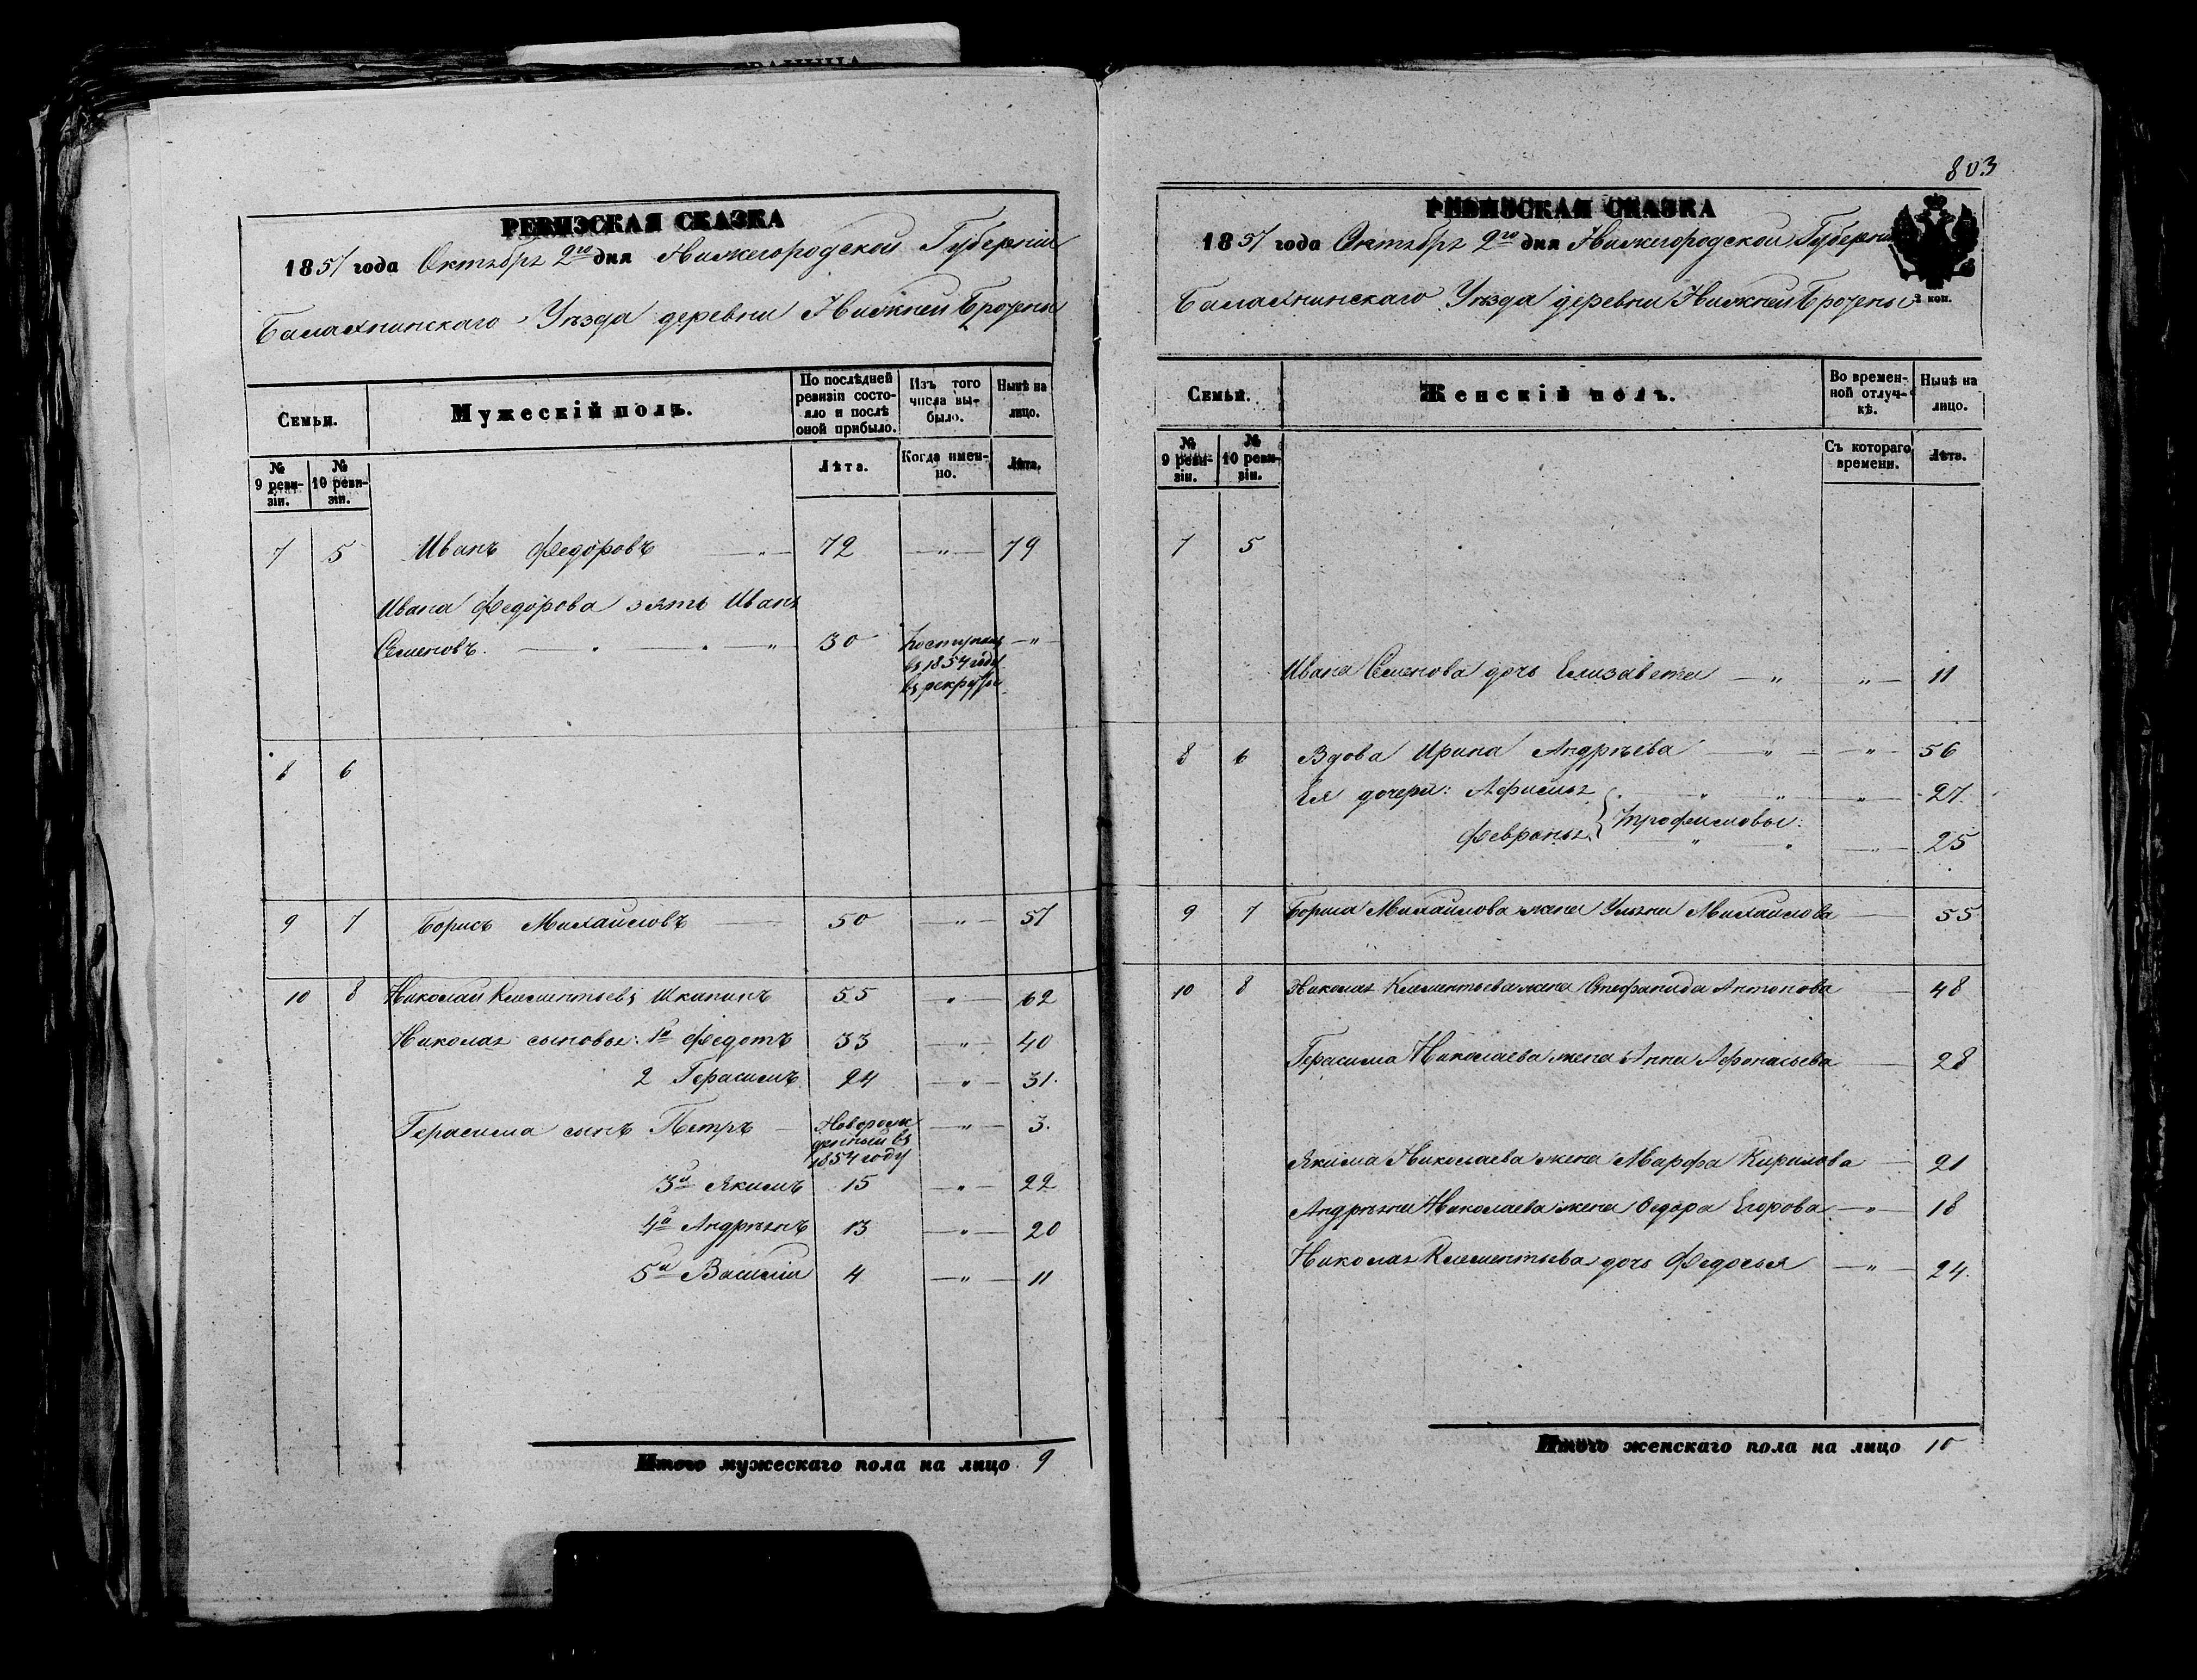 РЕВИЗСКАЯ СКАЗКА
1857 года Октября 2го дня Нижегородской Губерніи
Балахнинскаго Уѣзда деревни Нижней
Семьи.
Мужескій полъ.
По послѣдней ревизіи состояло и послѣ оной прибыло.
Изъ того числа выбыло.
Нынѣ на лицо.
№ 9 ревизіи.
№ 10 ревизіи.
Лѣта.
Когда именно.
Лѣта.
7 5 Иванъ Федоровъ — " — 72 — " — 79
Ивана Федорова зять Иванъ
Семеновъ. — " — 30 Поступилъ — "
въ 1854 году
въ рекруты
8 6
9 7 Борисъ Михайловъ — 50 — " — 57
10 8 Николай Клементьевъ Шкапинъ 55 — " — 62
Николая сыновья: 1й Федотъ 33 — " — 40
2 Герасимъ 24 — " — 31.
Герасима сынъ Петръ — Новорожденный въ 1854 году — " — 3.
3й Якимъ 15 — " — 22
4й Андреянъ 13 — " — 20
5й Василій 4 — " — 11
Итого мужескаго пола на лицо 9
803
РЕВИЗСКАЯ СКАЗКА
1857 года Октября 2го дня Нижегородской Губерніи
Балахнинскаго Уѣзда деревни Нижней
2 коп.
Семьи.
Женскій полъ.
Во временной отлучкѣ.
Нынѣ на лицо.
№ 9 ревизіи.
№ 10 ревизіи.
Съ котораго времени.
Лѣта.
7 5
Ивана Семенова дочь Елизавета — " — " — 11
8 6 Вдова Ирина Андрѣева — " — " — 56
Ея дочери: Афимья — " — " — 27.
Трофимовы:
Февронья — " — " — 25
9 7 Бориса Михайлова жена Ульяна Михайлова — 55
10 8 Николая Клементьева жена Степанида Антонова — 48
Герасима Николаева жена Анна Афонасьева — 28
Якима Николаева жена Марфа Кирилова — 21
Андреяна Николаева жена Федора Егорова — " — 18
Николая Клементьева дочь Федосья — " — 24.
Итого женскаго пола на лицо 10